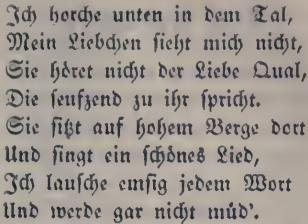 Ich horche unten in dem Tal,
Mein Liebchen sieht mich nicht,
Sie höret nicht der Liebe Qual,
Die seufzend zu ihr spricht.
Sie sitzt auf hohem Berge dort
Und singt ein schönes Lied,
Ich lausche emsig jedem Wort
Und werde gar nicht müd'.